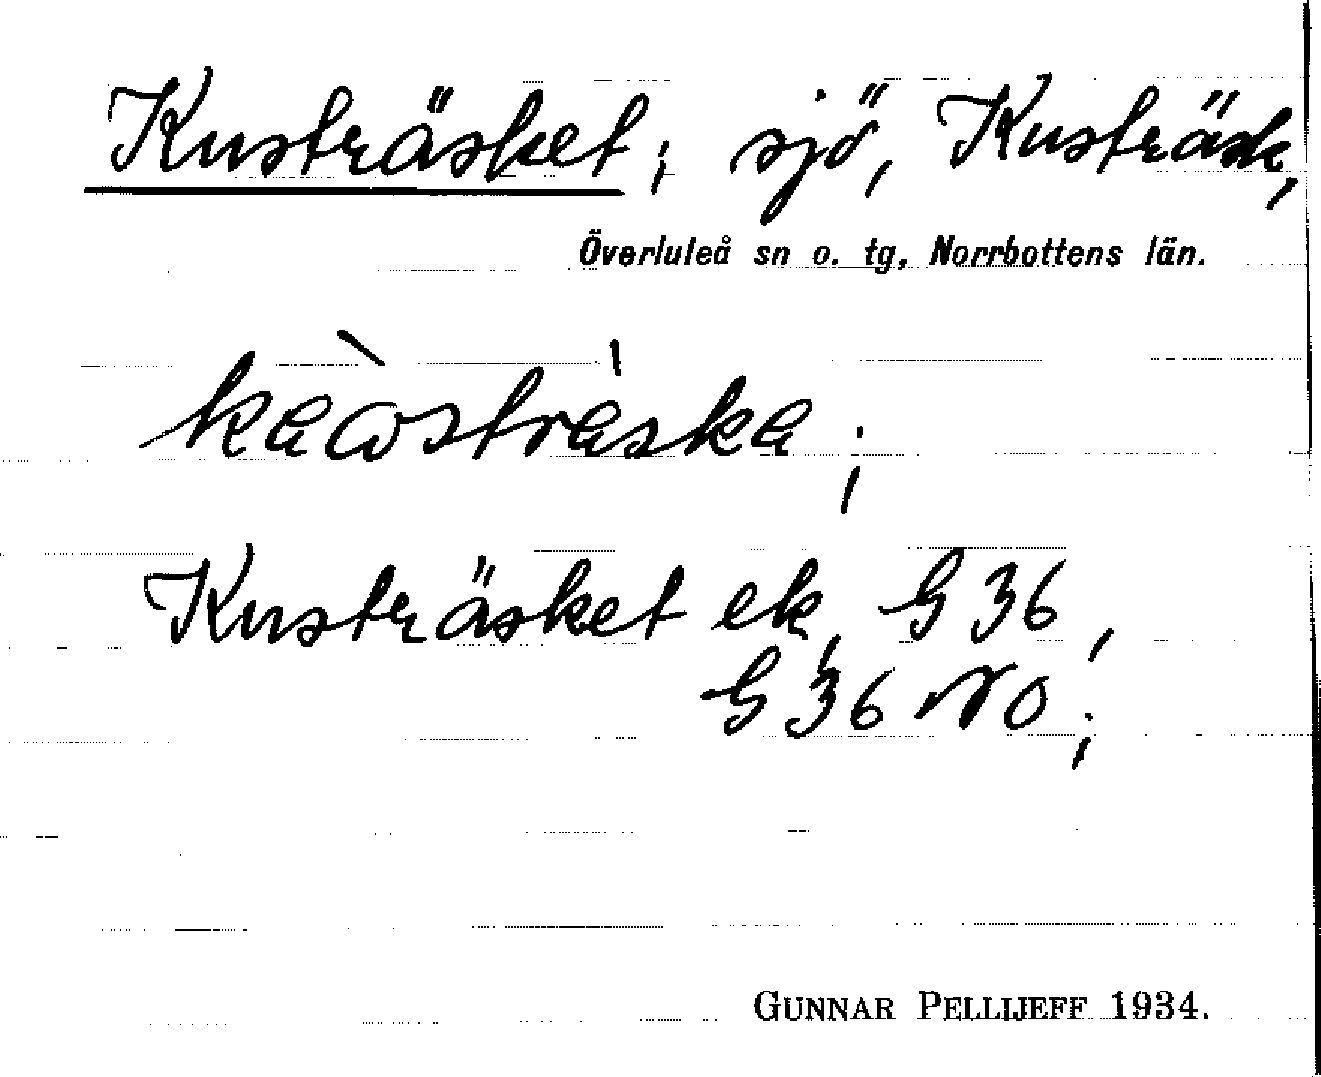 Kusträsket; sjö, Kusträsk,
Överluleå sn o. tg, Norrbottens län.
Kusträsket ek, G 36,
G 36 NO;
GUNNAR PELLIJEFF 1934.